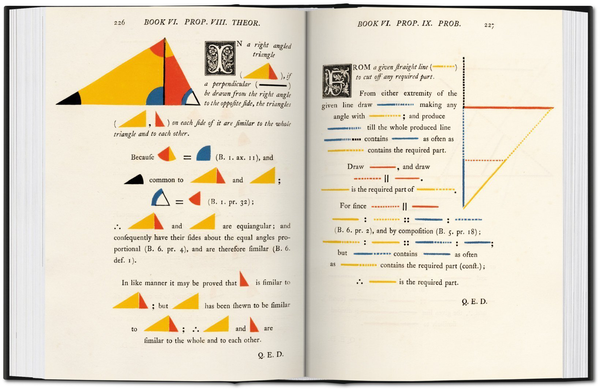 226 BOOK VI. PROP. VIII. THEOR.
IN a right angled
triangle
( ), if
a perpendicular ( )
be drawn from the right angle
to the opposite side, the triangles
( , ) on each side of it are similar to the whole
triangle and to each other.
Because = (B. 1. ax. 11), and
common to and ;
= (B. 1. pr. 32);
∴ and are equiangular; and
consequently have their sides about the equal angles pro-
portional (B. 6. pr. 4), and are therefore similar (B. 6.
def. 1).
In like manner it may be proved that is similar to
; but has been shewn to be similar
to ; ∴ and are
similar to the whole and to each other.
Q. E. D.
BOOK VI. PROP. IX. PROB. 227
FROM a given straight line ( )
to cut off any required part.
From either extremity of the
given line draw making any
angle with ; and produce
till the whole produced line
contains as often as
contains the required part.
Draw , and draw
|| .
is the required part of .
For since ||
: :: : ;
(B. 6. pr. 2), and by composition (B. 5. pr. 18);
: :: : ;
but contains as often
as contains the required part (const.);
∴ is the required part.
Q. E. D.